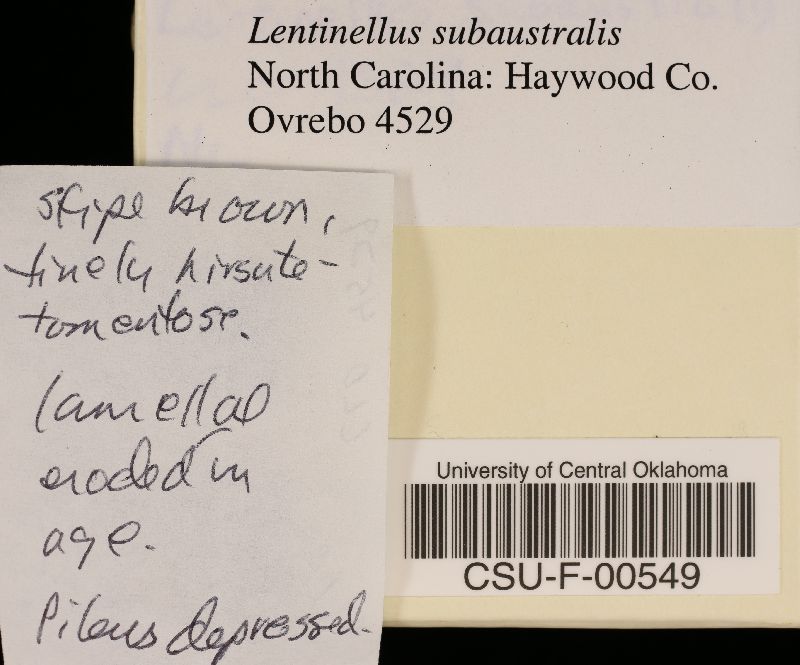 Lentinellus subaustralis
North Carolina: Haywood Co.
Ovrebo 4529
stipe brown,
finely hirsute-
tomentose.
lamellae
eroded in
age.
Pileus depressed.
University of Central Oklahoma
CSU-F-00549